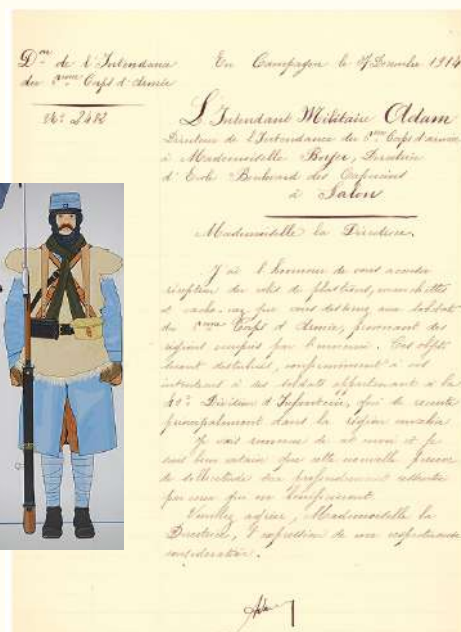 de l'Intendance
du Corps d'Armée
En Campagne le Décembre 1914
No 2482
L'Intendant Militaire Adam
Directeur de l'Intendance du Corps d'armée
à Mademoiselle Directrice
d'Ecole Boulevard des Capucins
à Salon
Mademoiselle la Directrice,
J'ai l'honneur de vous accuser
réception du colis de plastrons, manchettes
et cache-nez que vous destinez aux soldats
du Corps d'Armée, provenant des
régions occupées par l'ennemi. Ces objets
seront distribués, conformément à vos
intentions à des soldats appartenant à la
40e Division d'Infanterie, qui se recrute
principalement dans la région envahie.
Je vous remercie de cet envoi et je
suis bien certain que cette nouvelle preuve
de sollicitude sera profondément ressentie
par ceux qui en bénéficieront.
Veuillez agréer, Mademoiselle la
Directrice, l'expression de ma respectueuse
considération.